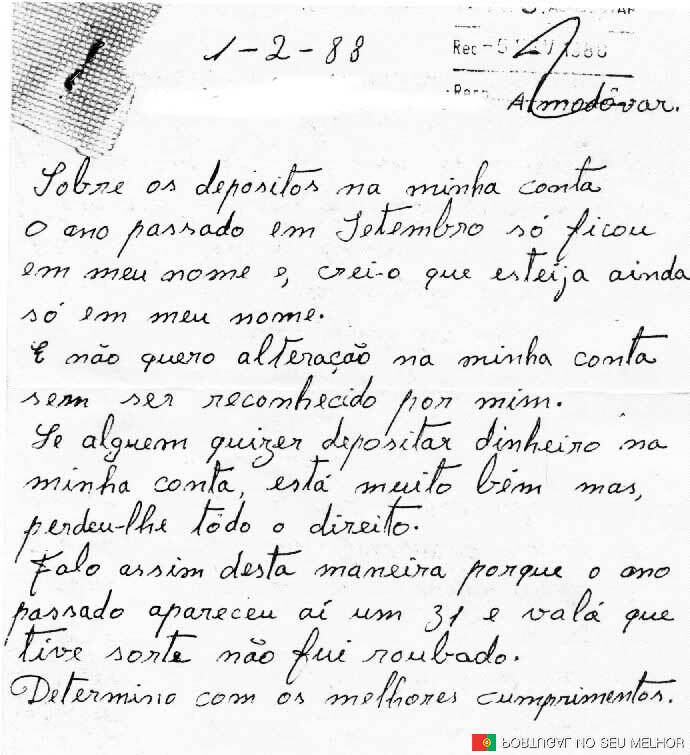 1-2-88
Rec -5
1988
Almodôvar.
Sobre os depósitos na minha conta
O ano passado em Setembro só ficou
em meu nome e, crei-o que esteija ainda
só em meu nome.
E não quero alteração na minha conta
sem ser reconhecido por mim.
Se alguem quizer depositar dinheiro na
minha conta, está muito bém mas,
perdeu-lhe tôdo o direito.
Falo assim desta maneira porque o ano
passado apareceu aí um 31 e valá que
tive sorte não fui roubado.
Determino com os melhores cumprimentos.
PORTUGAL NO SEU MELHOR